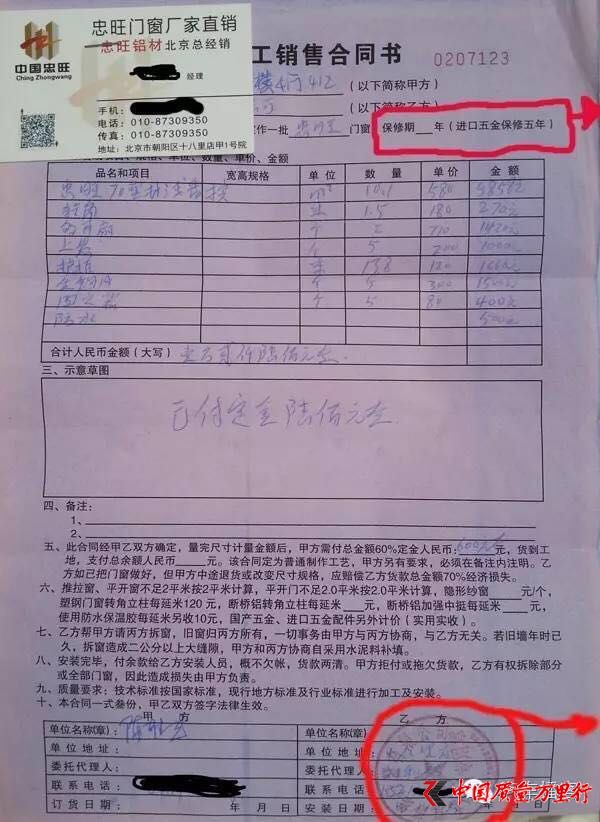 忠旺门窗厂家直销
忠旺铝材北京总经销
中国忠旺
Ching Zhongwang
经理
手机:
电话: 010-87309350
传真: 010-87309350
地址: 北京市朝阳区十八里店甲1号院
工销售合同书
0207123
横4门412 (以下简称甲方)
(以下简称乙方)
作一批 门窗 保修期 年(进口五金保修五年)
规格、单位、数量、单价、金额
品名和项目 宽高规格 单位 数量 单价 金额
忠旺70 580
米 1.5 180 270元
个 2 710 1420元
个 5 200 1000元
米 138 180
个 5 300 1500元
个 5 80 400元
防水 500元
合计人民币金额(大写) 壹万贰仟陆佰元整.
三、示意草图
已付定金陆佰元整
四、备注:
1、
2、
五、此合同经甲乙双方确定,量完尺寸计量金额后,甲方需付总金额60%定金人民币: 600元 元,货到工
地,支付总余额人民币 元。该合同定为普通制作工艺,甲方另有要求,必须在备注内注明。乙
方如已把门窗做好,但甲方中途退货或改变尺寸规格,应赔偿乙方货款总金额70%经济损失。
六、推拉窗、平开窗不足2平米按2平米计算,平开门不足2.0平米按2.0平米计算,隐形纱窗 元/个,
塑钢门窗转角立柱每延米120元,断桥铝转角立柱每延米 元,断桥铝加强中挺每延米 元,
使用防水保温胶每延米另收10元,国产五金、进口五金配件另外计价(实用实收)。
七、乙方帮甲方请丙方拆窗,旧窗归丙方所有,一切事务由甲方与丙方协商,与乙方无关。若旧墙年时已
久,拆窗造成二公分以上大缝隙,甲方和丙方协商自采用水泥料补填。
八、安装完毕,付余款给乙方安装人员,概不欠帐,货款两清。甲方拒付或拖欠货款,乙方有权拆除部分
或全部门窗,因此造成损失由甲方负责。
九、质量要求:技术标准按国家标准,现行地方标准及行业标准进行加工及安装。
十、本合同一式叁份,甲乙双方签字法律生效。
甲 方 乙 方
单位名称(章): 单位名称(章):
单位地址: 单位地址:
委托代理人: 委托代理人:
联系电话: 联系电话:
订货日期: 年 月 日 安装日期: 年 月 日
中国质量万里行